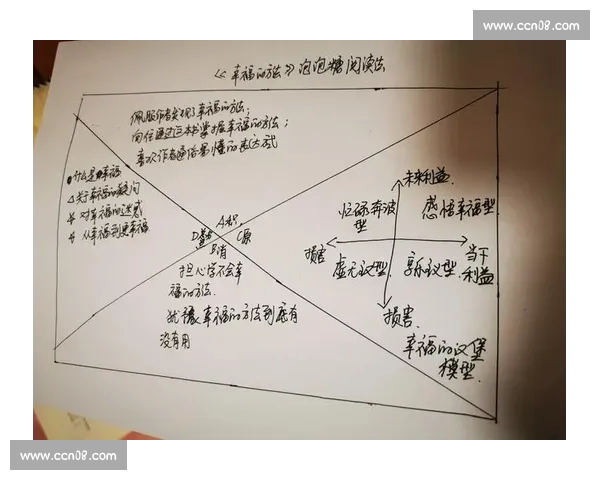 www.ccn08.com
《幸福的方法》泡泡糖阅读法
佩服作者发现了幸福的方法;
向往通过这本书掌握幸福的方法;
喜欢作者通俗易懂的表达方式
什么是幸福
关于幸福的疑问
对幸福的迷惑
从幸福到更幸福
A积,
C原
B消
担心学不会幸
福的方法.
犹豫幸福的方法到底有
没有用
未来利益.
忙碌奔波
型
感悟幸福型
损害
当下
利益
虚无议型
享乐议型
损害.
幸福的汉堡
模型.
www.ccn08.com